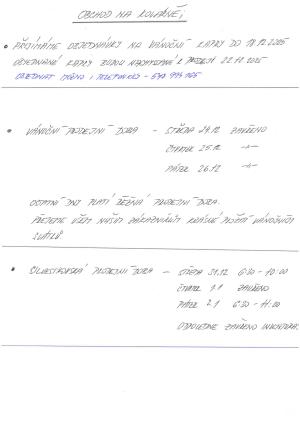 OBCHOD NA KOLÁRNĚ:
• PŘIJÍMÁME OBJEDNÁVKY NA VÁNOČNÍ KAPRY DO 18.12.2025
OBJEDNANÉ KAPRY BUDOU NACHYSTANÉ K PRODEJI 22.12.2025
OBJEDNAT MOŽNO I TELEFONICKY -
• VÁNOČNÍ PRODEJNÍ DOBA - STŘEDA 24.12 ZAVŘENO
ČTVRTEK 25.12 -"-
PÁTEK 26.12 -"-
OSTATNÍ DNY PLATÍ BĚŽNÁ PRODEJNÍ DOBA.
PŘEJEME VŠEM NAŠIM ZÁKAZNÍKŮM KRÁSNÉ PROŽITÍ VÁNOČNÍCH
SVÁTKŮ.
• SILVESTROVSKÁ PRODEJNÍ DOBA - STŘEDA 31.12 6:30 - 10:00
ČTVRTEK 1.1 ZAVŘENO
PÁTEK 2.1 6:30 - 11:00
ODPOLEDNE ZAVŘENO INVENTURA.